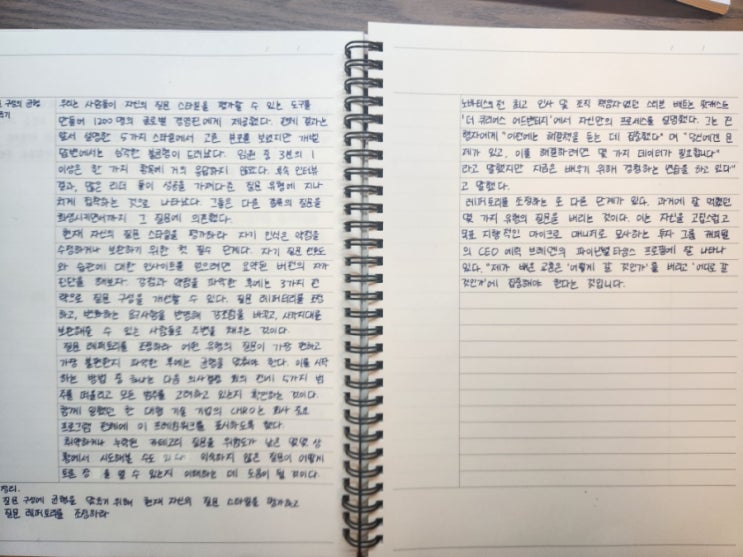 구성의 균형
우리는 사람들이 자신의 질문 스타일을 평가할 수 있는 도구를
만들어 1200명의 글로벌 경영진에게 제공했다. 전체 결과는
앞서 설명한 5가지 스타일에서 고른 분포를 보였지만 개별
답변에서는 심각한 불균형이 드러났다. 임원 중 3분의 1
이상은 한 가지 항목에 거의 응답하지 않았다. 후속 인터뷰
결과, 많은 리더 들이 성공을 가져다준 질문 유형에 지나
치게 집착하는 것으로 나타났다. 그들은 다른 종류의 질문을
희생시키면서까지 그 질문에 의존했다.
현재 자신의 질문 스타일을 평가하라 자기 인식은 약점을
수정하거나 보완하기 위한 첫 필수 단계다. 자기 질문
와 습관에 대한 인사이트를 얻으려면 요약된 버전의 자가
진단을 해보자. 강점과 약점을 파악한 후에는 3가지 전
략으로 질문 구성을 개선할 수 있다. 질문 레퍼토리를 조정
하고, 변화하는 요구사항을 반영해 강조점을 바꾸고, 사각지대를
보완해줄 수 있는 사람들로 주변을 채우는 것이다.
질문 레퍼토리를 조정하라 어떤 유형의 질문이 가장 편하고
가장 불편한지 파악한 후에는 균형을 맞춰야 한다. 이를 시작
하는 방법 중 하나는 다음 의사결정 회의 전에 5가지 범
주를 떠올리고 모든 범주를 고려하고 있는지 확인하는 것이다.
함께 일했던 한 대형 기술 기업의 CHRO는 회사 주요
프로그램 전체에 이 프레임워크를 표시하도록 했다.
취약하거나 누락된 카테고리 질문을 위험도가 낮은 몇몇 상
황에서 시도해볼 수도 있다. 익숙하지 않은 질문이 어떻게
토론 장 을 열 수 있는지 이해하는 데 도움이 될 것이다.
정리.
질문 구성에 균형을 맞추기 위해 현재 자신의 질문 스타일을 평가하고
질문 레퍼토리를 조정하라
노바티스의 전 최고 인사 및 조직 책임자였던 스티븐 배트는 팟캐스트
'더 큐리어스 어드밴티지'에서 자신만의 프로세스를 설명했다. 그는 진
행자에게 "이전에는 해결책을 듣는 데 집중했다"며 "당신에겐 문
제가 있고, 이를 해결하려면 몇 가지 데이터가 필요합니다"
라고 말했지만 지금은 배우기 위해 경청하는 연습을 하고 있다"
고 말했다.
레퍼토리를 조정하는 또 다른 단계가 있다. 과거에 잘 먹혔던
몇 가지 유형의 질문을 버리는 것이다. 이는 자신을 고집스럽고
목표 지향적인 마이크로 매니저로 묘사하는 투자 그룹 캐피털
의 CEO 에릭 브레인의 파이낸셜타임스 프로필에 잘 나타나
있다. "제가 배운 교훈은 '어떻게 갈 것인가'를 버리고 '어디로 갈
것인가'에 집중해야 한다는 것입니다.